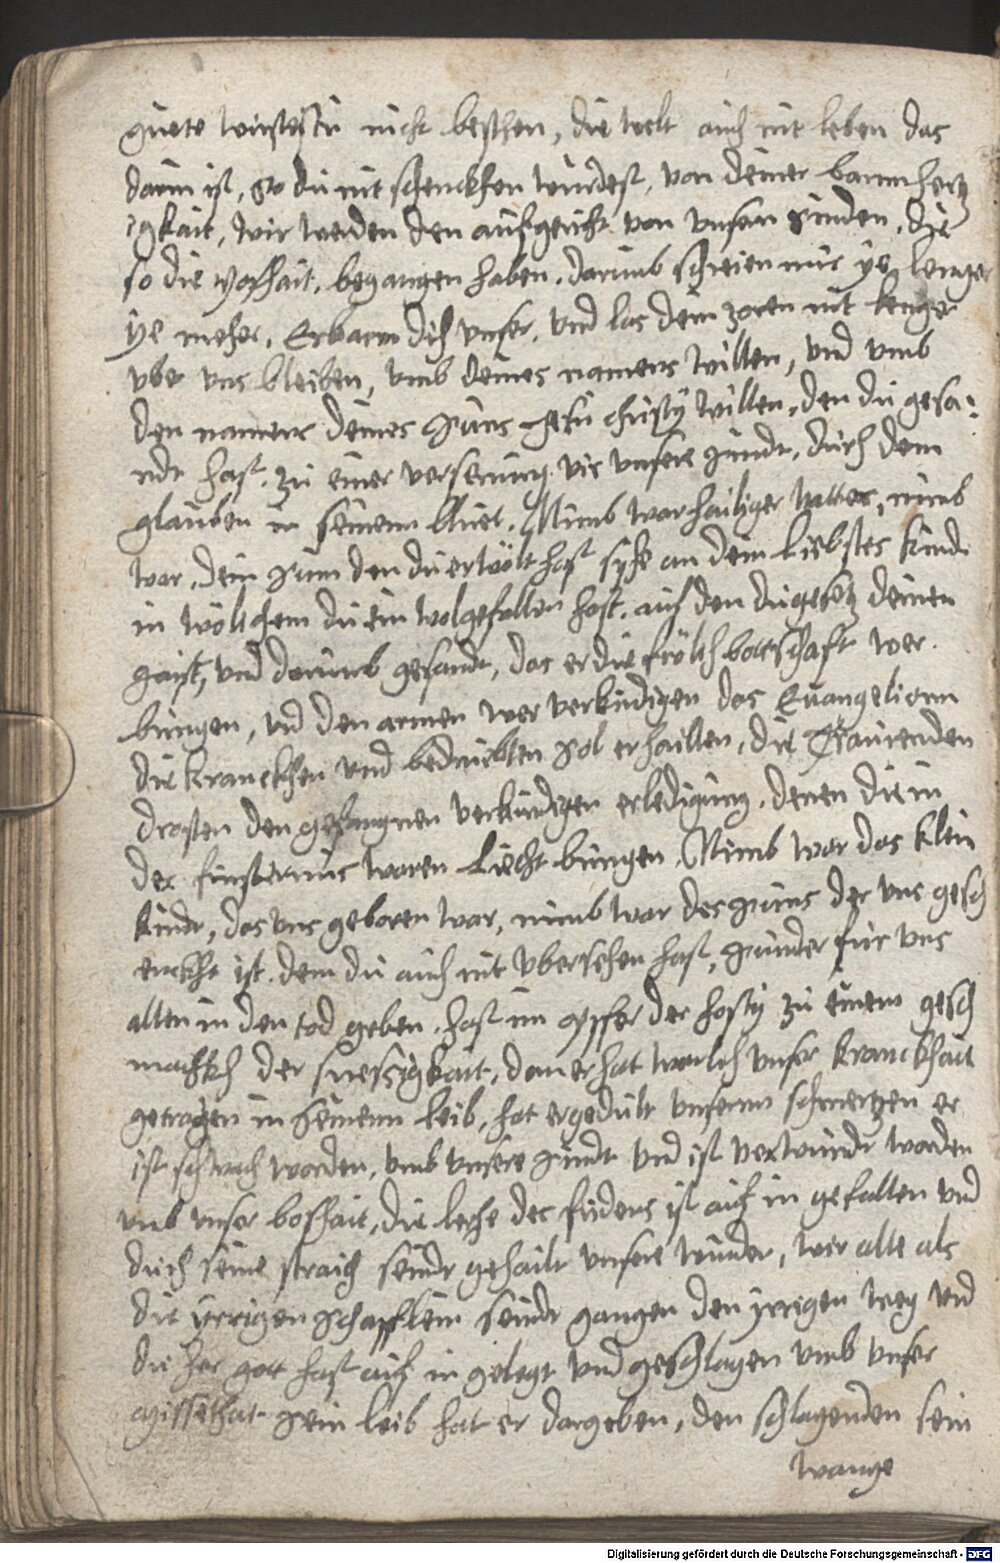 guete wirstestu nicht besthen, die welt auch nit leben das
darin ist, so du nit schenckhen wurdest, von deiner barmhertz
igkait, wir werden den aufgericht von unsern sinden, die
so die poshait, begangen haben, darumb schreien mir ye lenger
ye meher, Erbarm dich unser, und las dein zoren nit lenger
vber uns bleiben, umb deines namens willen, und umb
den namens deines suns Jesu christy willen, den du gesa:
ndt hast, zu einer versenung vir unsere sundt, durch dem
glauben in seinem bluet, Nimb war hailiger vatter, nimb
war, dein sun den du erwölt hast syhe an dein liebstes kindt
in wölichem du ein wolgefallen hast, auf den du gesetz deinen
gaist, und darumb gesandt, das er die frölich bottschaft wer
bringen, und den armen wer verkindigen das Euangeliom
die kranckhen und bedriebten sol erhaillen, die Traurenden
drosten den gefangnen verkindigen erledigung, denen die in
der finsternus waren liecht bringen, Nimb war das klein
kindt, das uns geboren war, nimb war des suns der uns gesch
enckht ist, dem du auch nit ubersehen hast, sunder für uns
allen in den tod geben, hast im opffer der hosty zu einem gesch
machkh der suessigkait, dan er hat warlich unser kranckhait
getragen in seinem leib, hat er gedult unsernn schmertzen er
ist schwach worden, umb unsere sundt und ist verwundt worden
umb unser boshait, die leche des fridens ist auf in gefallen und
durch seine straich seindt gehailt unsere wunder, wir alle als
die yrrigen schafflein seindt gangen den yrrigen weg und
du her gott hast auf in gelegt und geschlagen umb unser
missethat sein leib hat er dargeben, den schlagenden sein
wange
Digitalisierung gefördert durch die Deutsche Forschungsgemeinschaft - DFG